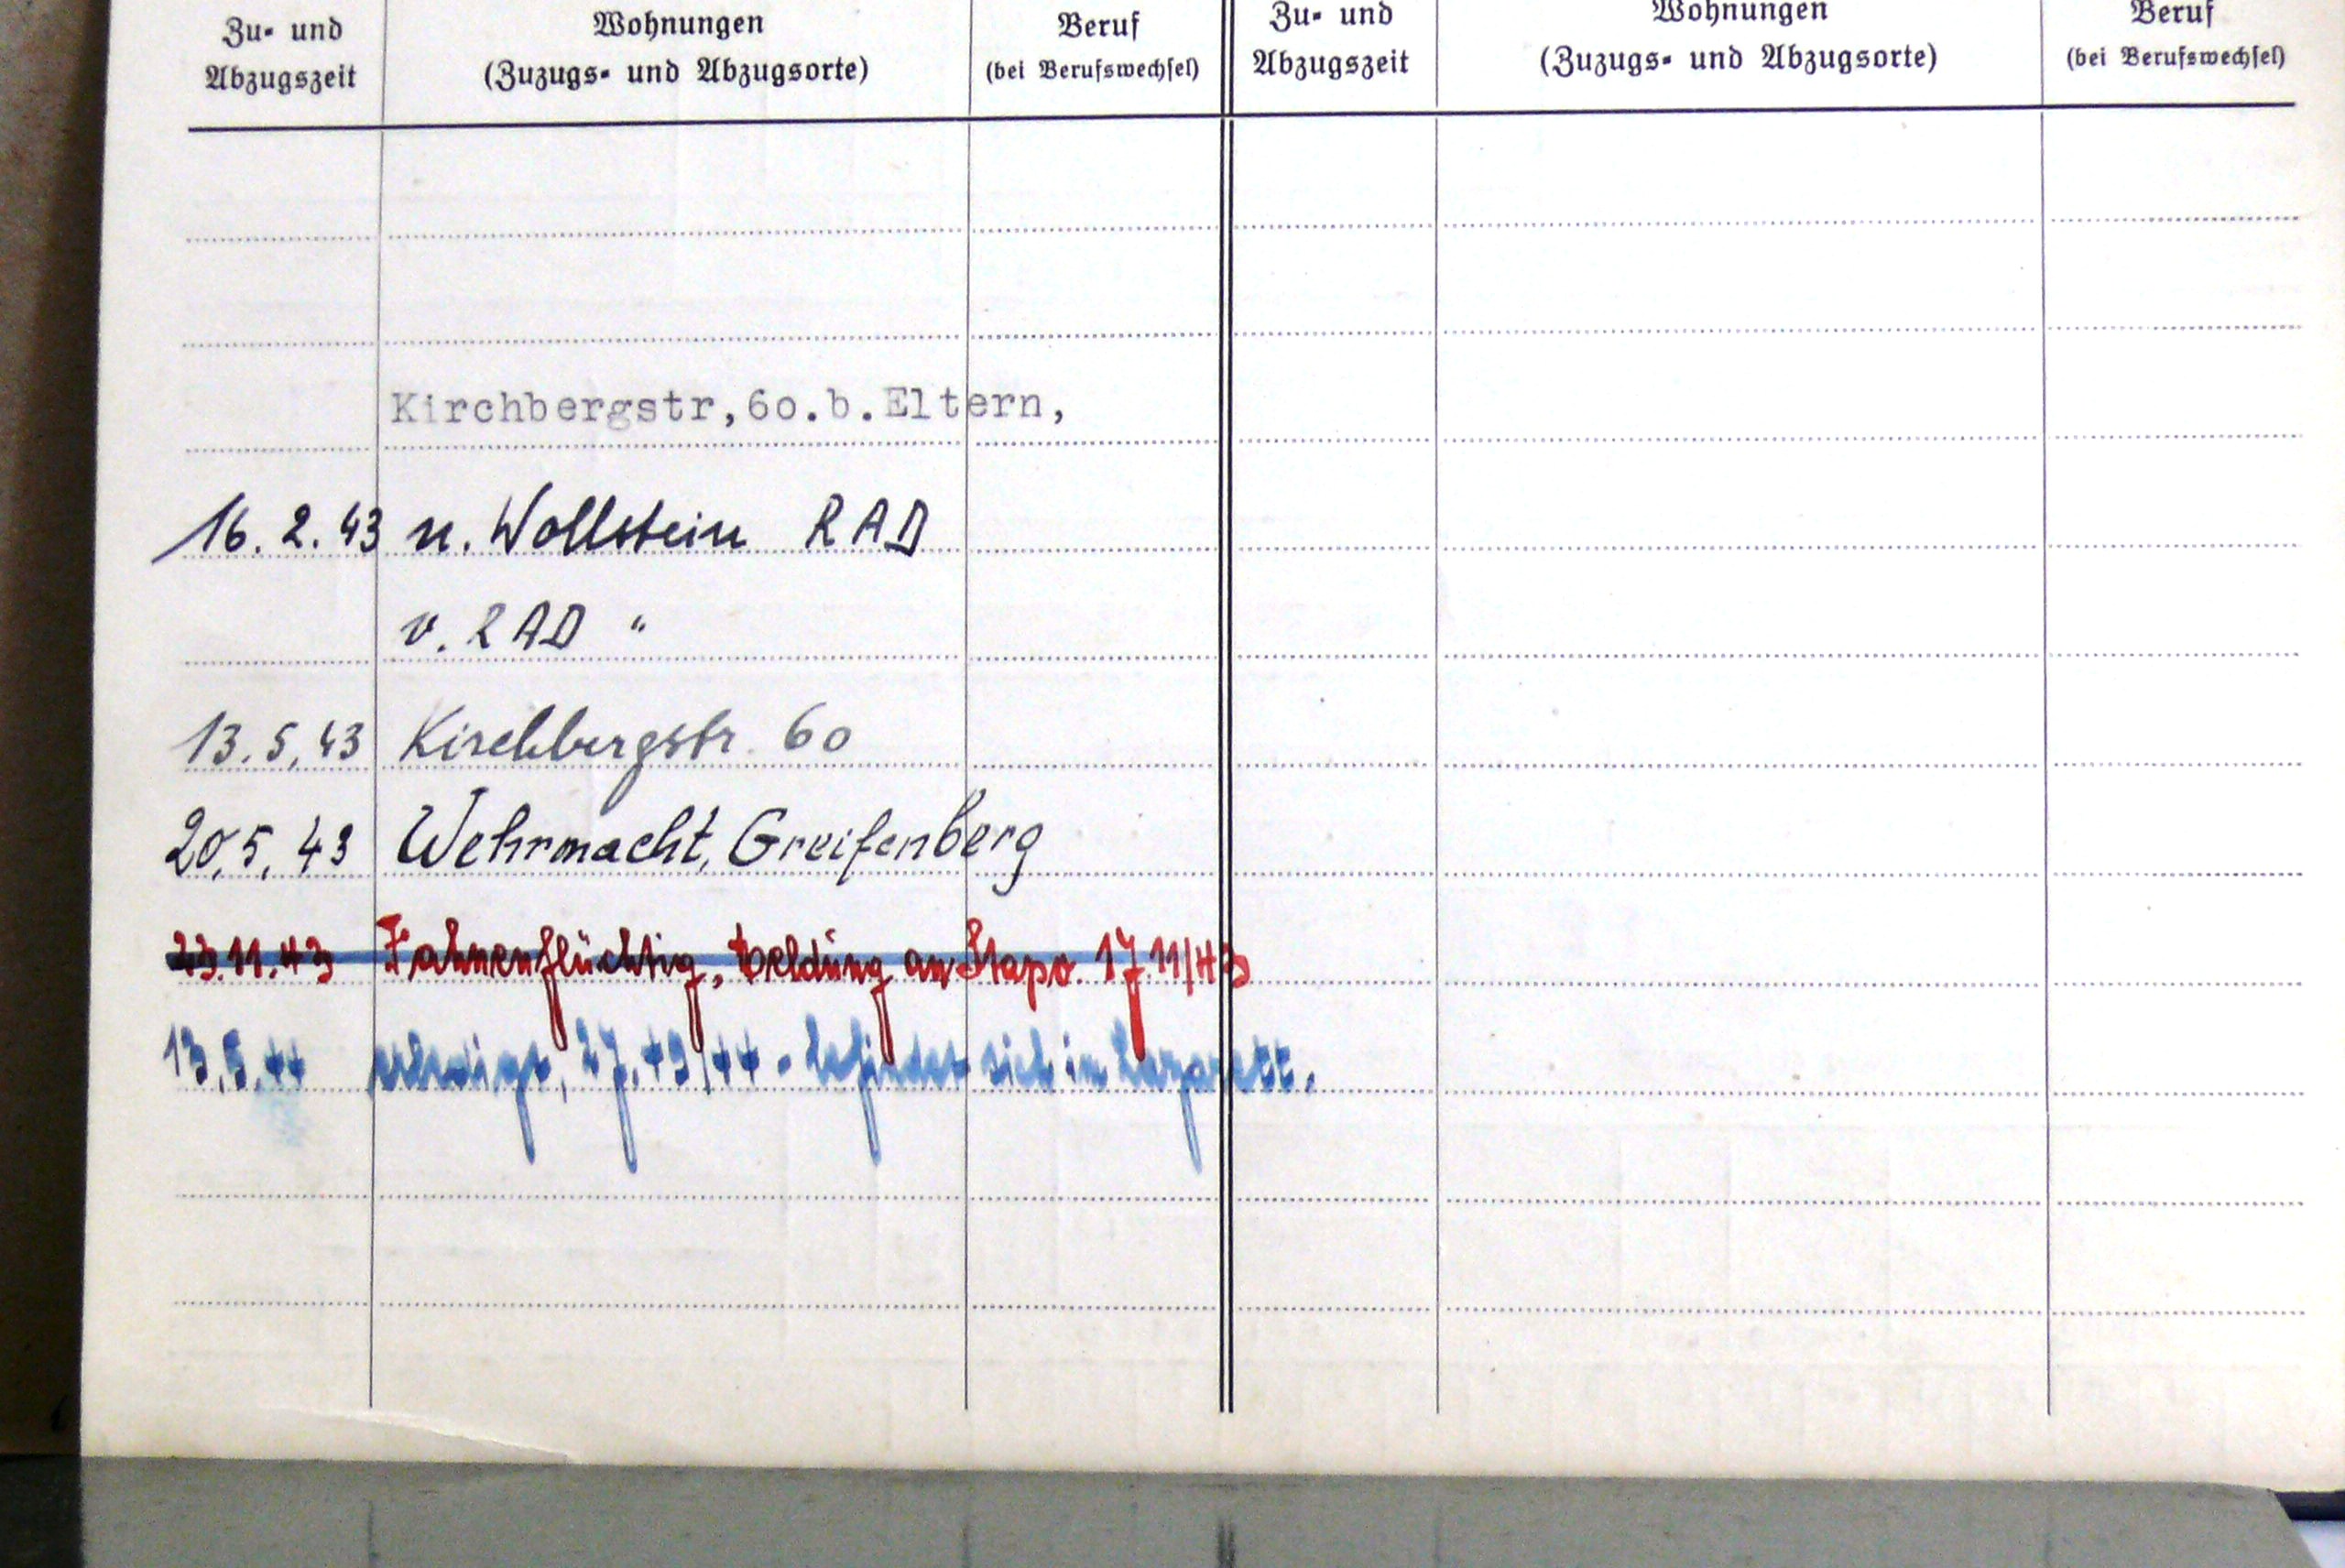 Zu- und Abzugszeit
Wohnungen (Zuzugs- und Abzugsorte)
Beruf (bei Berufswechsel)
Zu- und Abzugszeit
Wohnungen (Zuzugs- und Abzugsorte)
Beruf (bei Berufswechsel)
Kirchbergstr,60.b.Eltern,
16.2.43 n. Wollstein RAD
v. RAD "
13.5.43 Kirchbergstr. 60
20.5.43 Wehrmacht, Greifenberg
23.11.43 Fahnenflüchtig, Meldung an Stapo. 17.11/43
13.5.44 27.43/44 - befindet sich in Lazarett.